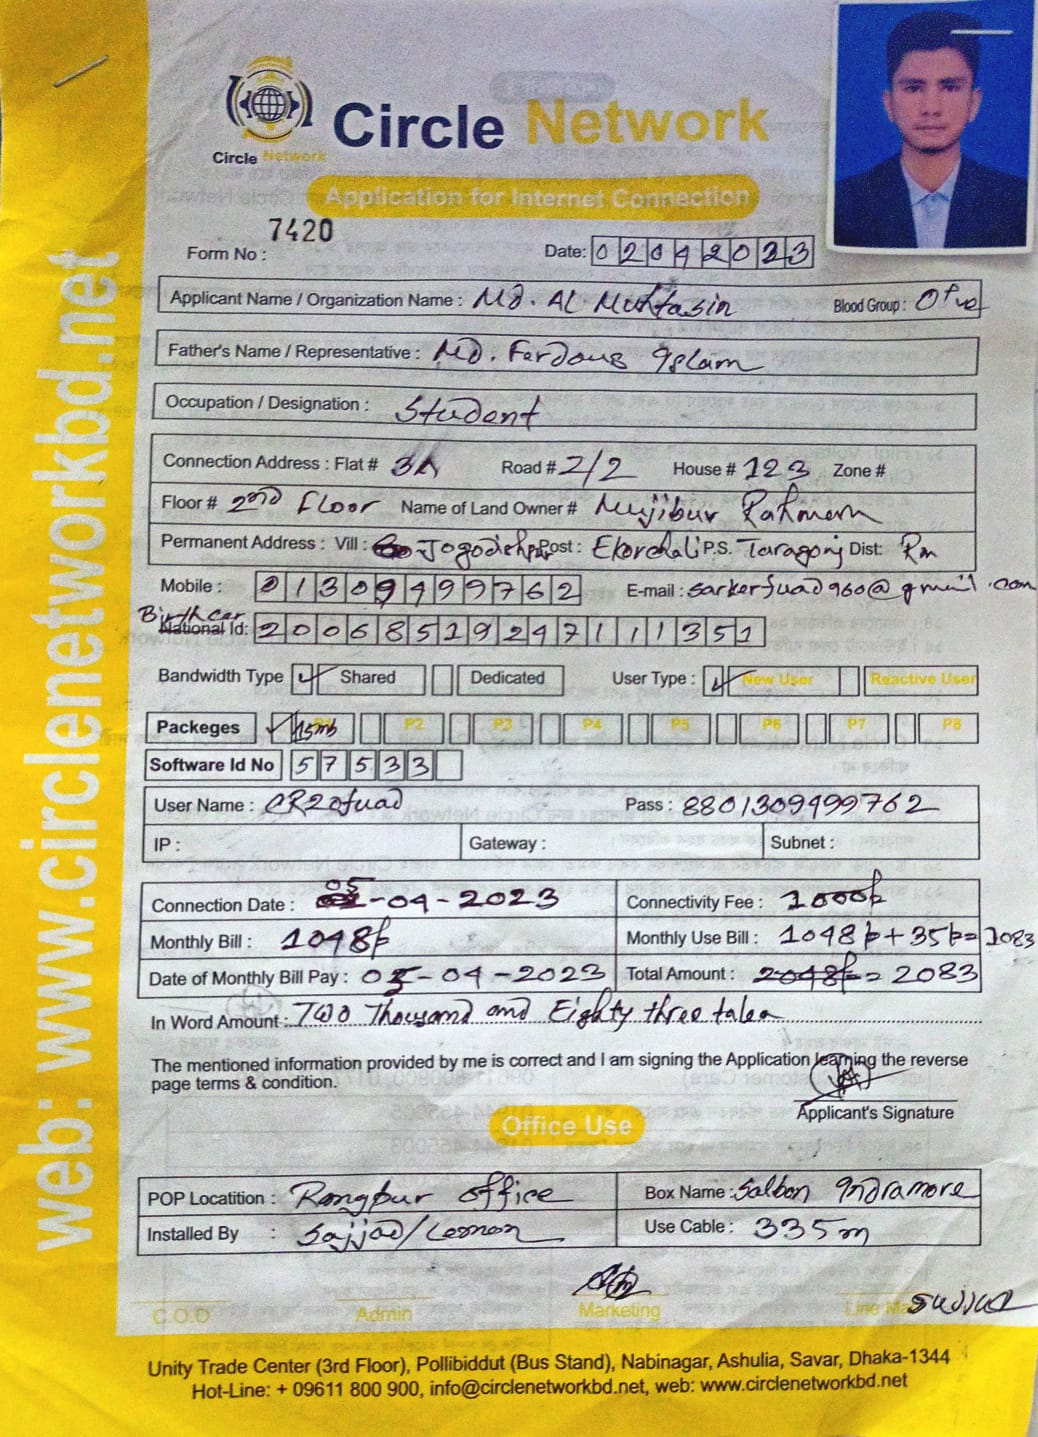 web: www.circlenetworkbd.net
Circle Network
Circle Network
Application for Internet Connection
7420
Form No :
Date: 02042023
Applicant Name / Organization Name : Md. AL Muhtasin Blood Group : O+ve
Father's Name / Representative : MD. Ferdous Islam
Occupation / Designation : Student
Connection Address : Flat # 3A Road # 2/2 House # 123 Zone #
Floor # 2nd Floor Name of Land Owner # Mujibur Rahman
Permanent Address : Vill : Post : Ekorchali P.S. Taragonj Dist: Rn
Mobile : 01309499762 E-mail : sarkerfuad960@gmail.com
Birth cer
National Id: 20068519247111351
Bandwidth Type Shared Dedicated User Type : New User Reactive User
Packeges 15mb P2 P3 P4 P5 P6 P7 P8
Software Id No 57533
User Name : CR20fuad Pass : 8801309499762
IP : Gateway : Subnet :
Connection Date : 05-04-2023 Connectivity Fee : 1000৳
Monthly Bill : 1048৳ Monthly Use Bill : 1048৳+35৳=1083
Date of Monthly Bill Pay : 05-04-2023 Total Amount : 2048৳= 2083
In Word Amount : Two Thousand and Eighty three taka
The mentioned information provided by me is correct and I am signing the Application learning the reverse
page terms & condition.
Applicant's Signature
Office Use
POP Locatition : Rangpur office Box Name : Salbon Indramore
Installed By : Sajjad/Lemon Use Cable : 335m
C.O.O Admin Marketing Line
Unity Trade Center (3rd Floor), Pollibiddut (Bus Stand), Nabinagar, Ashulia, Savar, Dhaka-1344
Hot-Line: + 09611 800 900, info@circlenetworkbd.net, web: www.circlenetworkbd.net